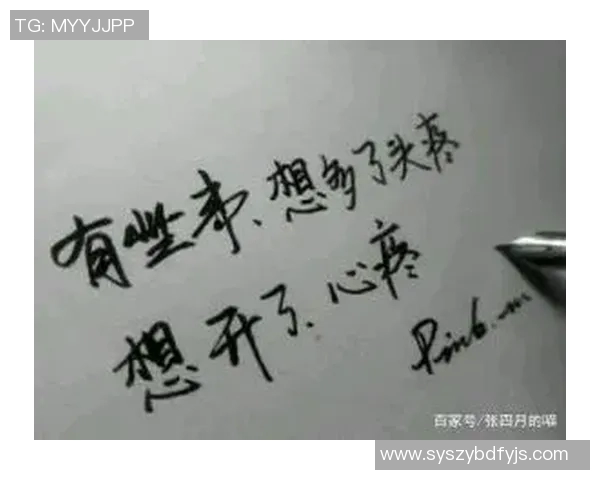 TG: MYYJJPP
有些事、想多了头疼
想开了、心疼
百家号/张四月的喵
www.syszybdfyjs.com